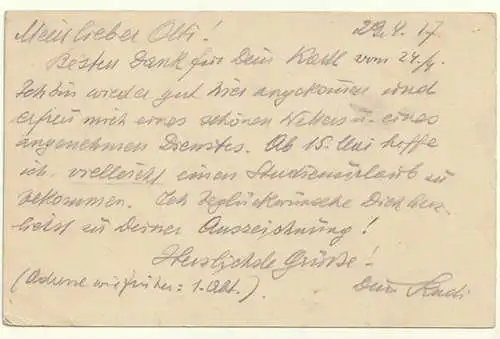 Mein lieber Otti! 29.4.17.
Besten Dank für Dein Kartl vom 24./4.
Ich bin wieder gut hier angekommen und
erfreu mich eines schönen Wetters u. eines
angenehmen Dienstes. Ab 15. Mai hoffe
ich vielleicht einen Studienurlaub zu
bekommen. Ich beglückwünsche Dich herz-
lichst zu Deiner Auszeichnung!
Herzlichste Grüße!
(Adresse wie früher: 1. Abt.) Dein Rudi